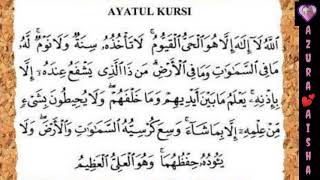 AYATUL KURSI
اَللّٰهُ لَآ اِلٰهَ اِلَّا هُوَ الْحَيُّ الْقَيُّوْمُ ۚ لَا تَأْخُذُهٗ سِنَةٌ وَّلَا نَوْمٌ ۗ لَهٗ
مَا فِى السَّمٰوٰتِ وَمَا فِى الْاَرْضِ ۗ مَنْ ذَا الَّذِيْ يَشْفَعُ عِنْدَهٗٓ اِلَّا
بِاِذْنِهٖ ۗ يَعْلَمُ مَا بَيْنَ اَيْدِيْهِمْ وَمَا خَلْفَهُمْ ۚ وَلَا يُحِيْطُوْنَ بِشَيْءٍ
مِّنْ عِلْمِهٖٓ اِلَّا بِمَا شَآءَ ۚ وَسِعَ كُرْسِيُّهُ السَّمٰوٰتِ وَالْاَرْضَ ۚ وَلَا
يَـُٔوْدُهٗ حِفْظُهُمَا ۚ وَهُوَ الْعَلِيُّ الْعَظِيْمُ
AZURA💕AISHA